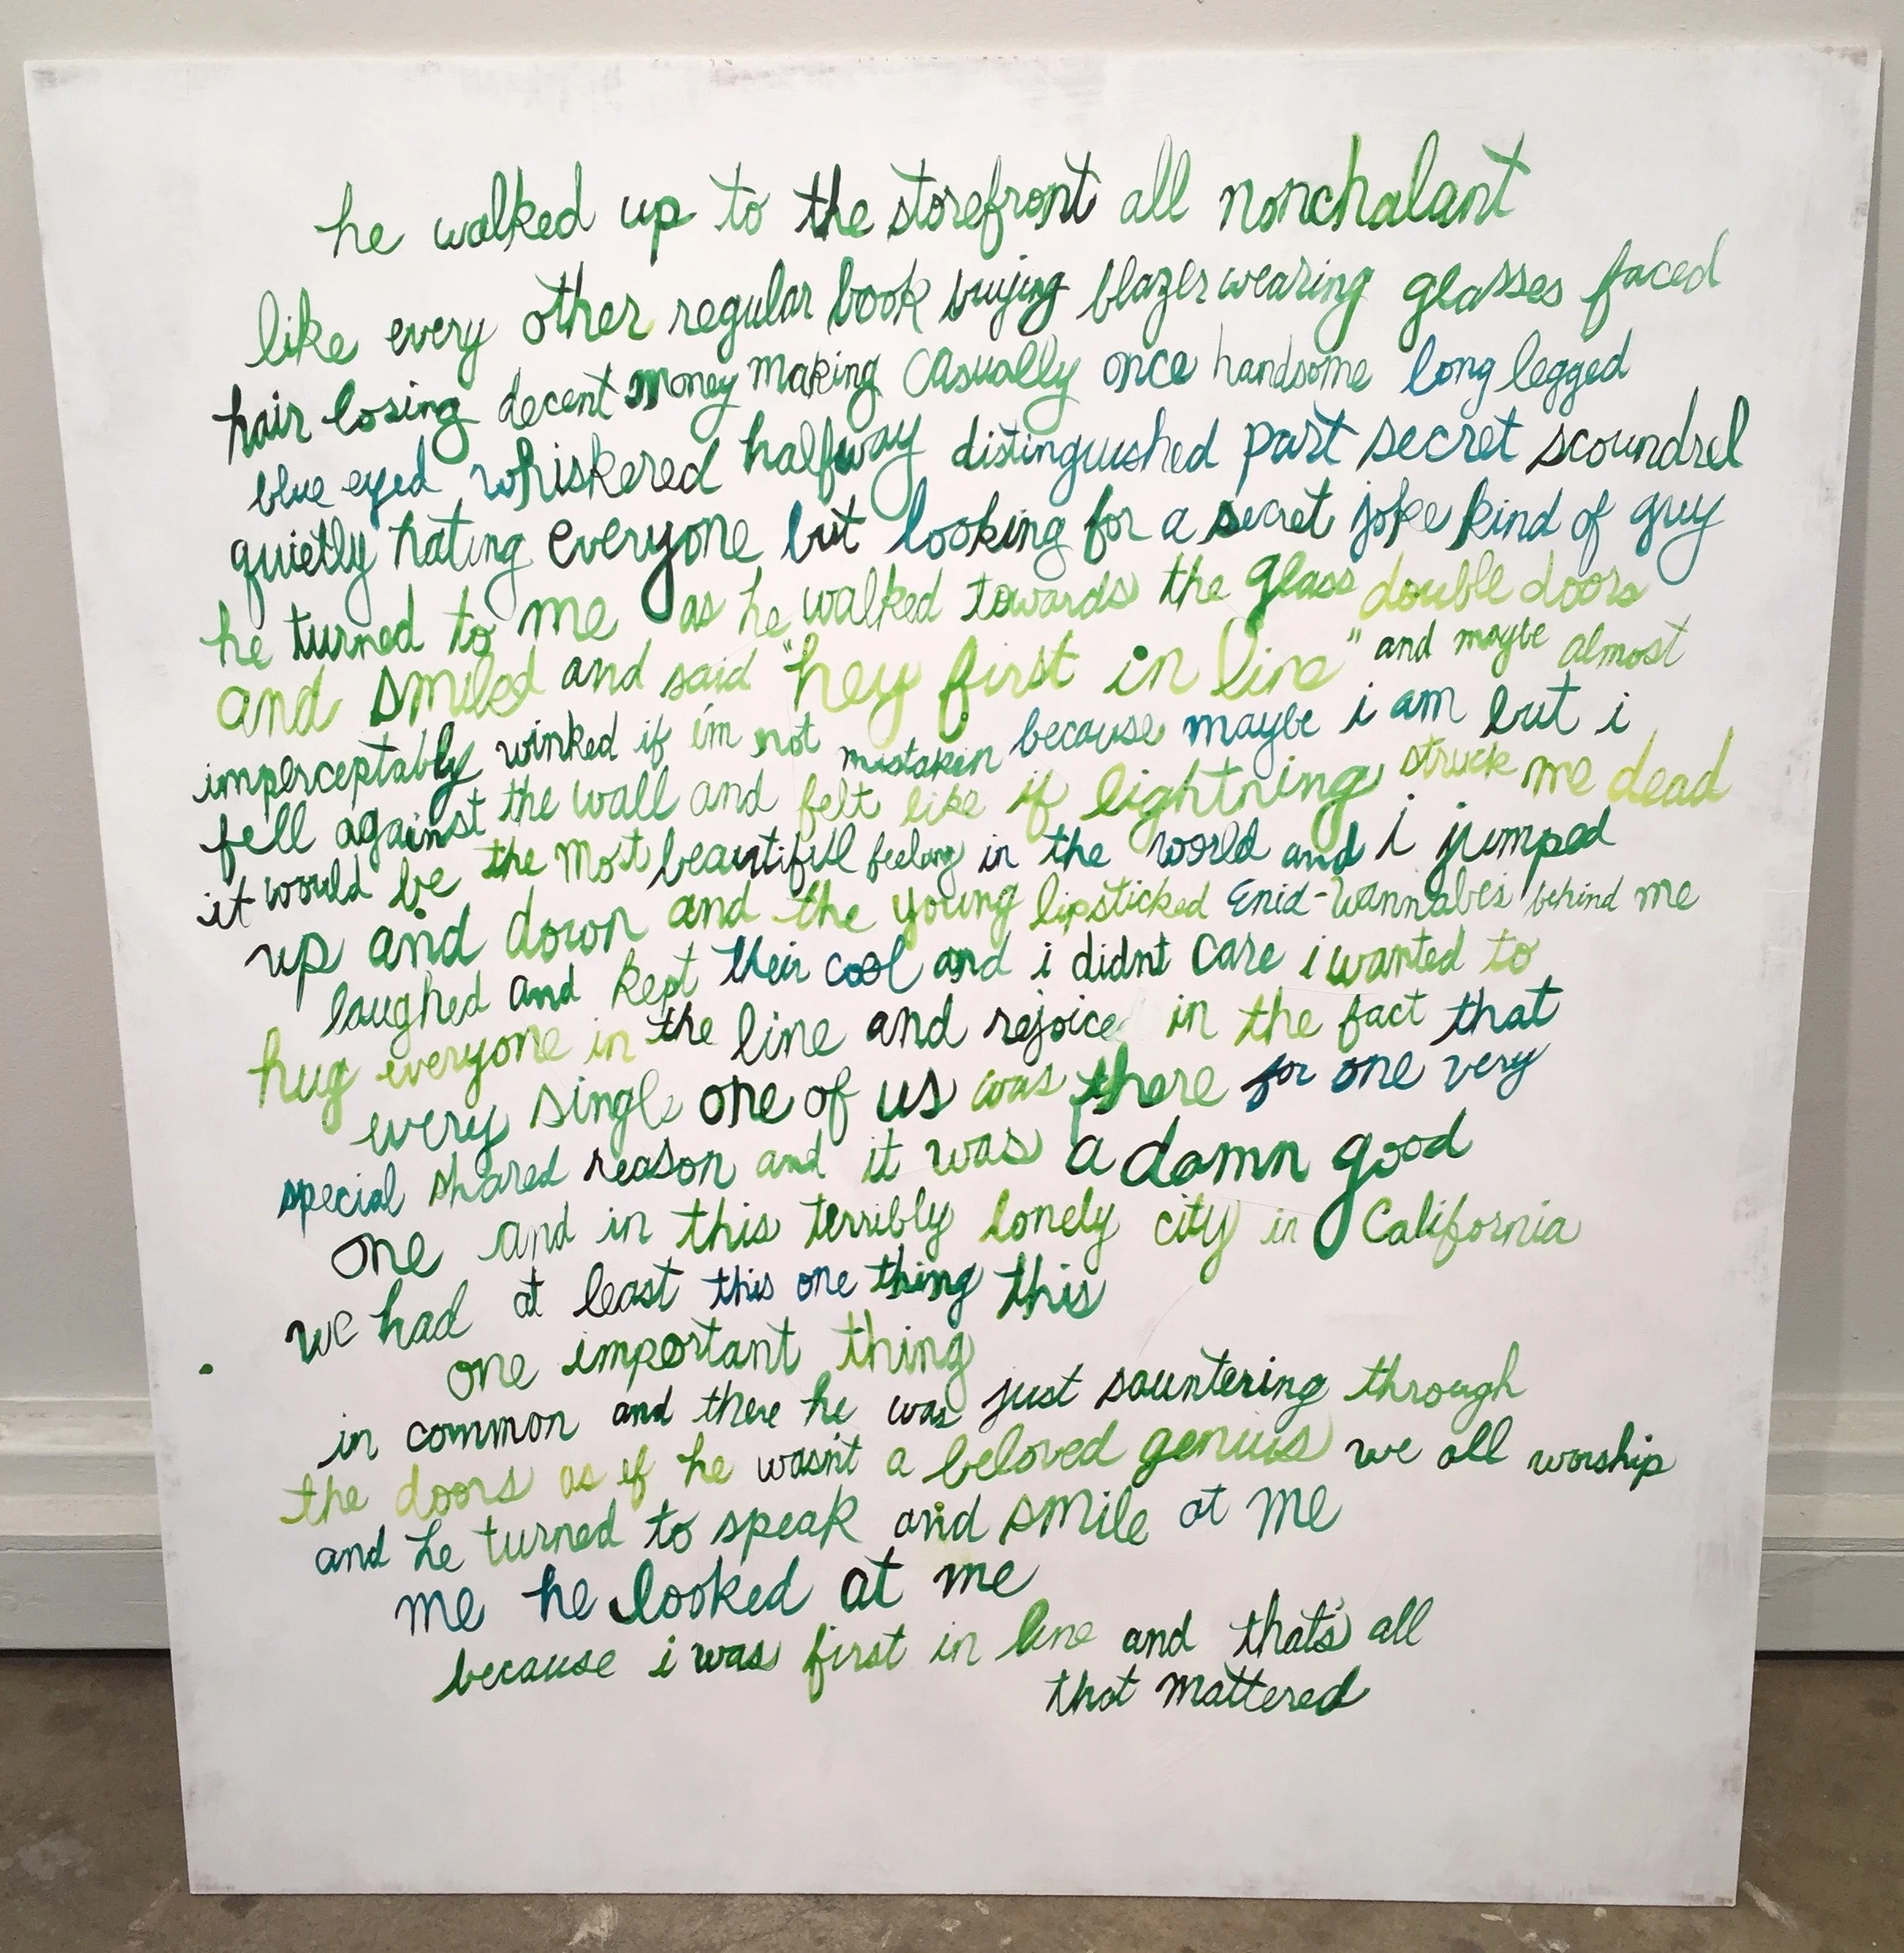 he walked up to the storefront all nonchalant
like every other regular book buying blazer wearing glasses faced
hair losing decent money making casually once handsome long legged
blue eyed whiskered halfway distinguished part secret scoundrel
quietly hating everyone but looking for a secret joke kind of guy
he turned to me as he walked towards the glass double doors
and smiled and said "hey first in line" and maybe almost
imperceptably winked if i'm not mistaken because maybe i am but i
fell against the wall and felt like if lightning struck me dead
it would be the most beautiful feeling in the world and i jumped
up and down and the young lipsticked Enid-wannabes behind me
laughed and kept their cool and i didnt care i wanted to
hug everyone in the line and rejoiced in the fact that
every single one of us was there for one very
special shared reason and it was a damn good
one and in this terribly lonely city in California
we had at least this one thing this
one important thing
in common and there he was just sauntering through
the doors as if he wasn't a beloved genius we all worship
and he turned to speak and smile at me
me he looked at me
because i was first in line and that's all
that mattered